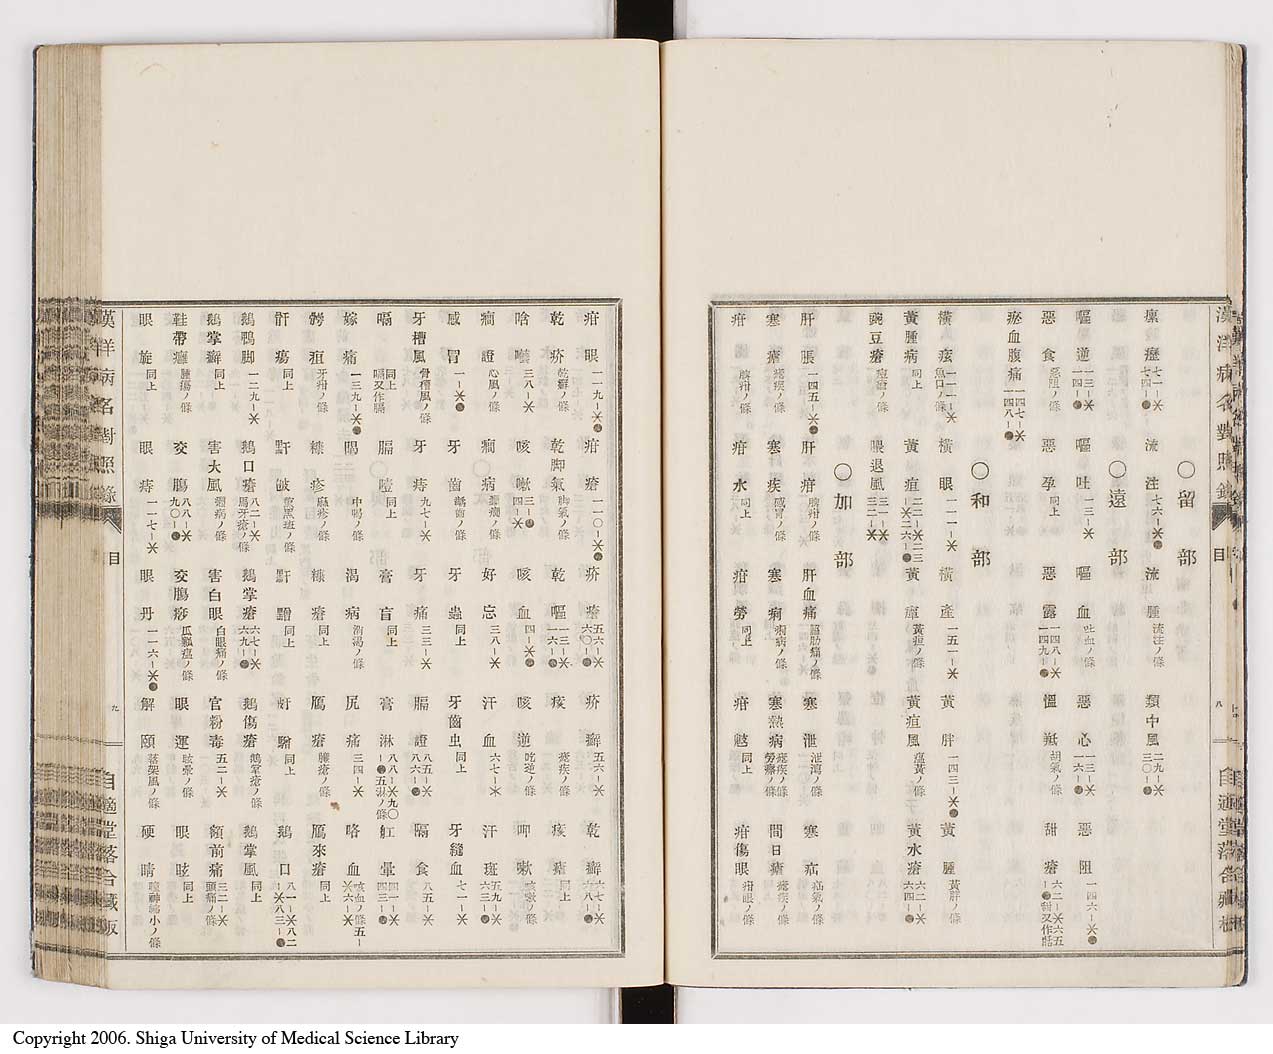 漢洋病名對照錄
目
八
自適堂落合藏板
○留部
瘰癧 七一-※ 七四-● 流注 七六-※● 流腫 流注ノ條 類中風 二九-※ 三〇-●
○遠部
嘔逆 一三-※ 一四-● 嘔吐 一三-※ 嘔血 吐血ノ條 惡心 一三-※ 一六-● 惡阻 一四六-※●
惡食 惡阻ノ條 惡孕 同上 惡露 一四八-※ 一四九-● 慍羝 胡氣ノ條 甜瘡 六二-※六五
瘀血腹痛 一四七-※ 一四八-●
○和部
橫痃 魚口ノ條 一一一-※ 橫眼 一一一-※ 橫產 一五一-※ 黃胖 一四三-※● 黃腫 黃胖ノ條
黃腫病 同上 黃疸 二二-※二三 -※二六-● 黃㾮 黃疸ノ條 黃疸風 瘟黃ノ條 黃水瘡 六二-※ 六四-●
豌豆瘡 痘瘡ノ條 喂退風 三一-※ 三二-※
○加部
肝脹 一四五-※● 肝疳 脾疳ノ條 肝血痛 脇肋痛ノ條 寒泄 泄瀉ノ條 寒疝 疝氣ノ條
寒瘧 瘧疾ノ條 寒疾 感冒ノ條 寒痢 痢病ノ條 寒熱病 瘧疾ノ條 勞瘵ノ條 間日瘧 瘧疾ノ條
疳 脾疳ノ條 疳水 同上 疳勞 同上 疳魃 同上 疳傷眼 疳眼ノ條
疳眼 一一九-※● 疳瘡 一一〇-※● 疥瘡 五六-※ 六〇-● 疥癬 五六-※ 乾癬 六七-※ 六八-●
乾疥 乾癬ノ條 乾脚氣 脚氣ノ條 乾嘔 一三-※ 一六-● 痎 瘧疾ノ條 痎瘧 同上
咳嗽 三八-※ 咳嗽 三-● 四-※ 咳血 四-※● 咳逆 吃逆ノ條 呷嗽 咳嗽ノ條
癎證 心風ノ條 癎病 癲癎ノ條 好忘 三八-※ 汗血 六七-※ 汗斑 五九-※ 六三-●
感冒 一-※● 牙齒 齲齒ノ條 牙蟲 同上 牙齒虫 同上 牙縫血 七一-※
牙槽風 骨槽風ノ條 牙痔 九七-※ 牙痛 三三-※ 膈證 八五-※ 八六-● 膈食 八五-※
嗝 同上 嗝又作膈 膈噎 同上 膏盲 同上 膏淋 八八-※九〇 -●五淋ノ條 缸暈 四一-※ 四三-●
嫁痛 一三九-※● 暍 中暍ノ條 渴病 消渴ノ條 尻痛 三四-※ 咯血 咳血ノ條五- ※六-※
髂疽 牙疳ノ條 糠疹 麻疹ノ條 糠瘡 同上 鴈瘡 臁瘡ノ條 鴈來瘡 同上
骭瘍 同上 黚皯 黧黑斑ノ條 皯䵳 同上 同上 鵝口 八一-※八二 -※八三-●
鵝鴨脚 一二九-※ 鵝口瘡 八二-※ 馬牙瘡ノ條 鵝掌瘡 六七-※ 六九-● 鵝傷瘡 鵝掌瘡ノ條 鵝掌風 同上
鵝掌癬 同上 害大風 癩病ノ條 害白眼 白眼痛ノ條 官粉毒 五二-※ 額前痛 三二-※ 頭痛ノ條
鞋帶癰 腫瘍ノ條 交腸 八八-※ 九〇-● 交腸痧 瓜瓤瘟ノ條 眼運 眩暈ノ條 眼眩 同上
眼旋 同上 眼痔 一一七-※ 眼丹 一一六-※● 解頤 落架風ノ條 硬睛 瞳神縮小ノ條
漢洋病名對照錄
目
九
自適堂落合藏板
Copyright 2006. Shiga University of Medical Science Library